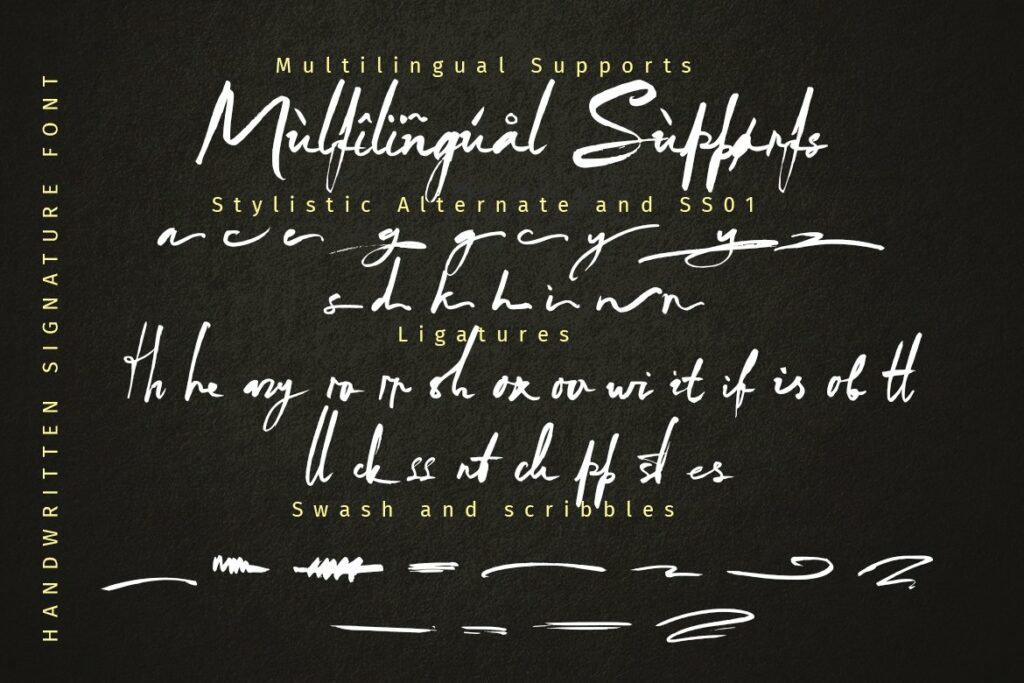 HANDWRITTEN SIGNATURE FONT
Multilingual Supports
Mùltîlïñgúål Sùppórts
Stylistic Alternate and SS01
a c e g g c y y z
s d k h i n n
Ligatures
th he ary ro rr sh ox ou wi it if is ob tt
ll ck ss nt ch pp st es
Swash and scribbles